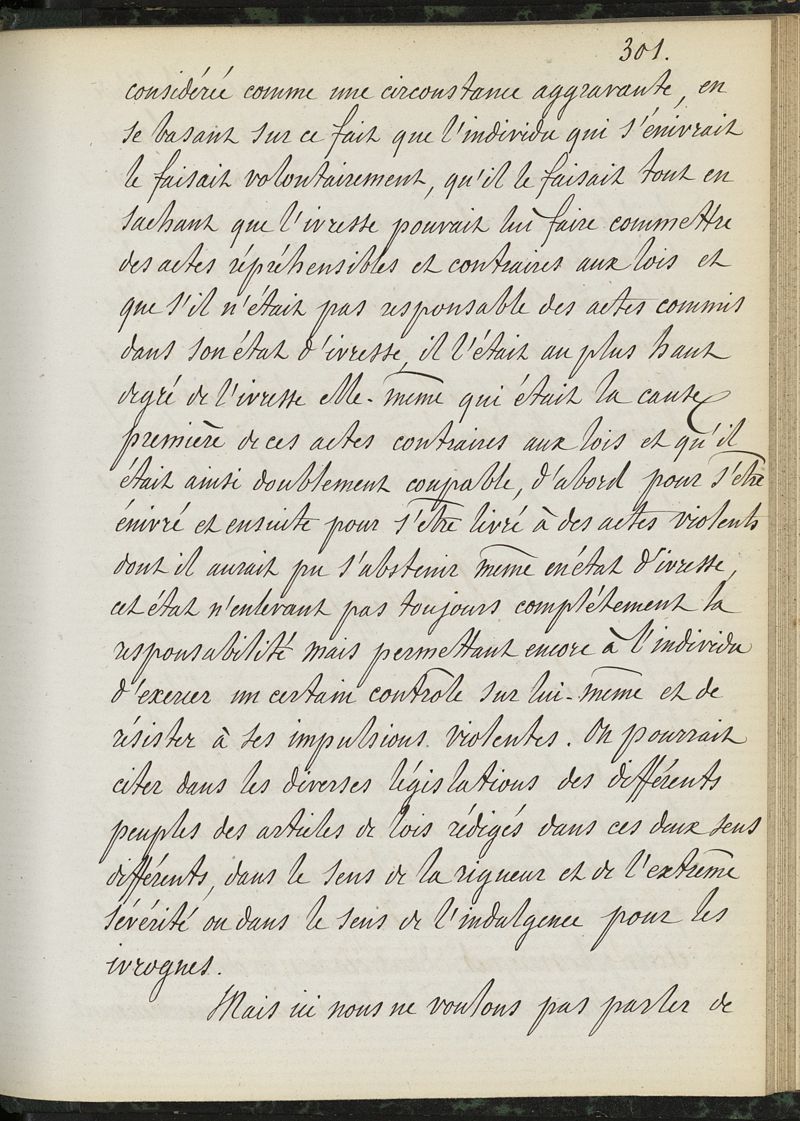 301.
considérée comme une circonstance aggravante, en
se basant sur ce fait que l'individu qui s'énivrait
le faisait volontairement, qu'il le faisait tout en
sachant que l'ivresse pouvait lui faire commettre
des actes répréhensibles et contraires aux lois et
que s'il n'était pas responsable des actes commis
dans son état d'ivresse, il l'était au plus haut
degré de l'ivresse elle-même qui était la cause
première de ces actes contraires aux lois et qu'il
était ainsi doublement coupable, d'abord pour s'être
énivré et ensuite pour s'être livré à des actes violents
dont il aurait pu s'abstenir même en état d'ivresse,
cet état n'enlevant pas toujours complétement la
responsabilité mais permettant encore à l'individu
d'exercer un certain contrôle sur lui-même et de
résister à ses impulsions violentes. On pourrait
citer dans les diverses législations des différents
peuples des articles de lois rédigés dans ces deux sens
différents, dans le sens de la rigueur et de l'extrême
sévérité ou dans le sens de l'indulgence pour les
ivrognes.
Mais ici nous ne voulons pas parler de